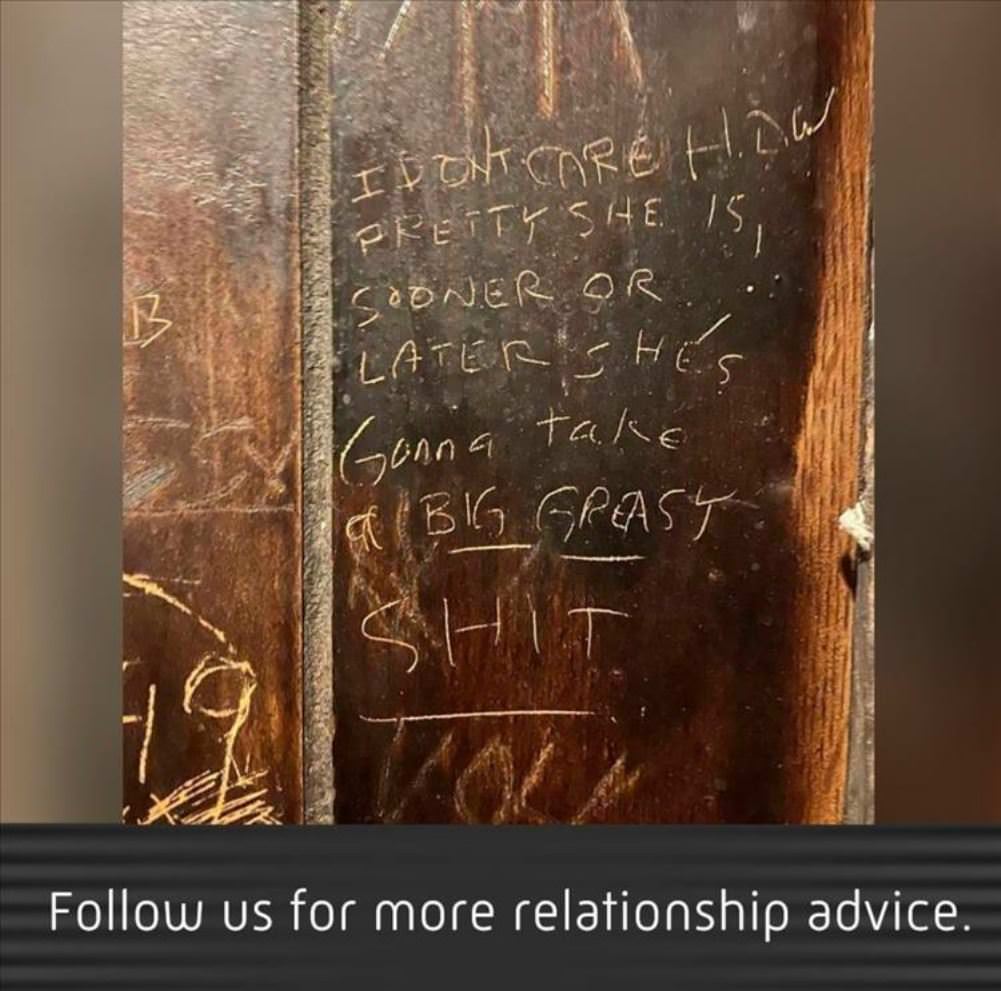 B
I DONT CARE HOW
PRETTY SHE IS,
SOONER OR
LATER SHE'S
Gonna take
a BIG GREASY
SHIT
19
Follow us for more relationship advice.